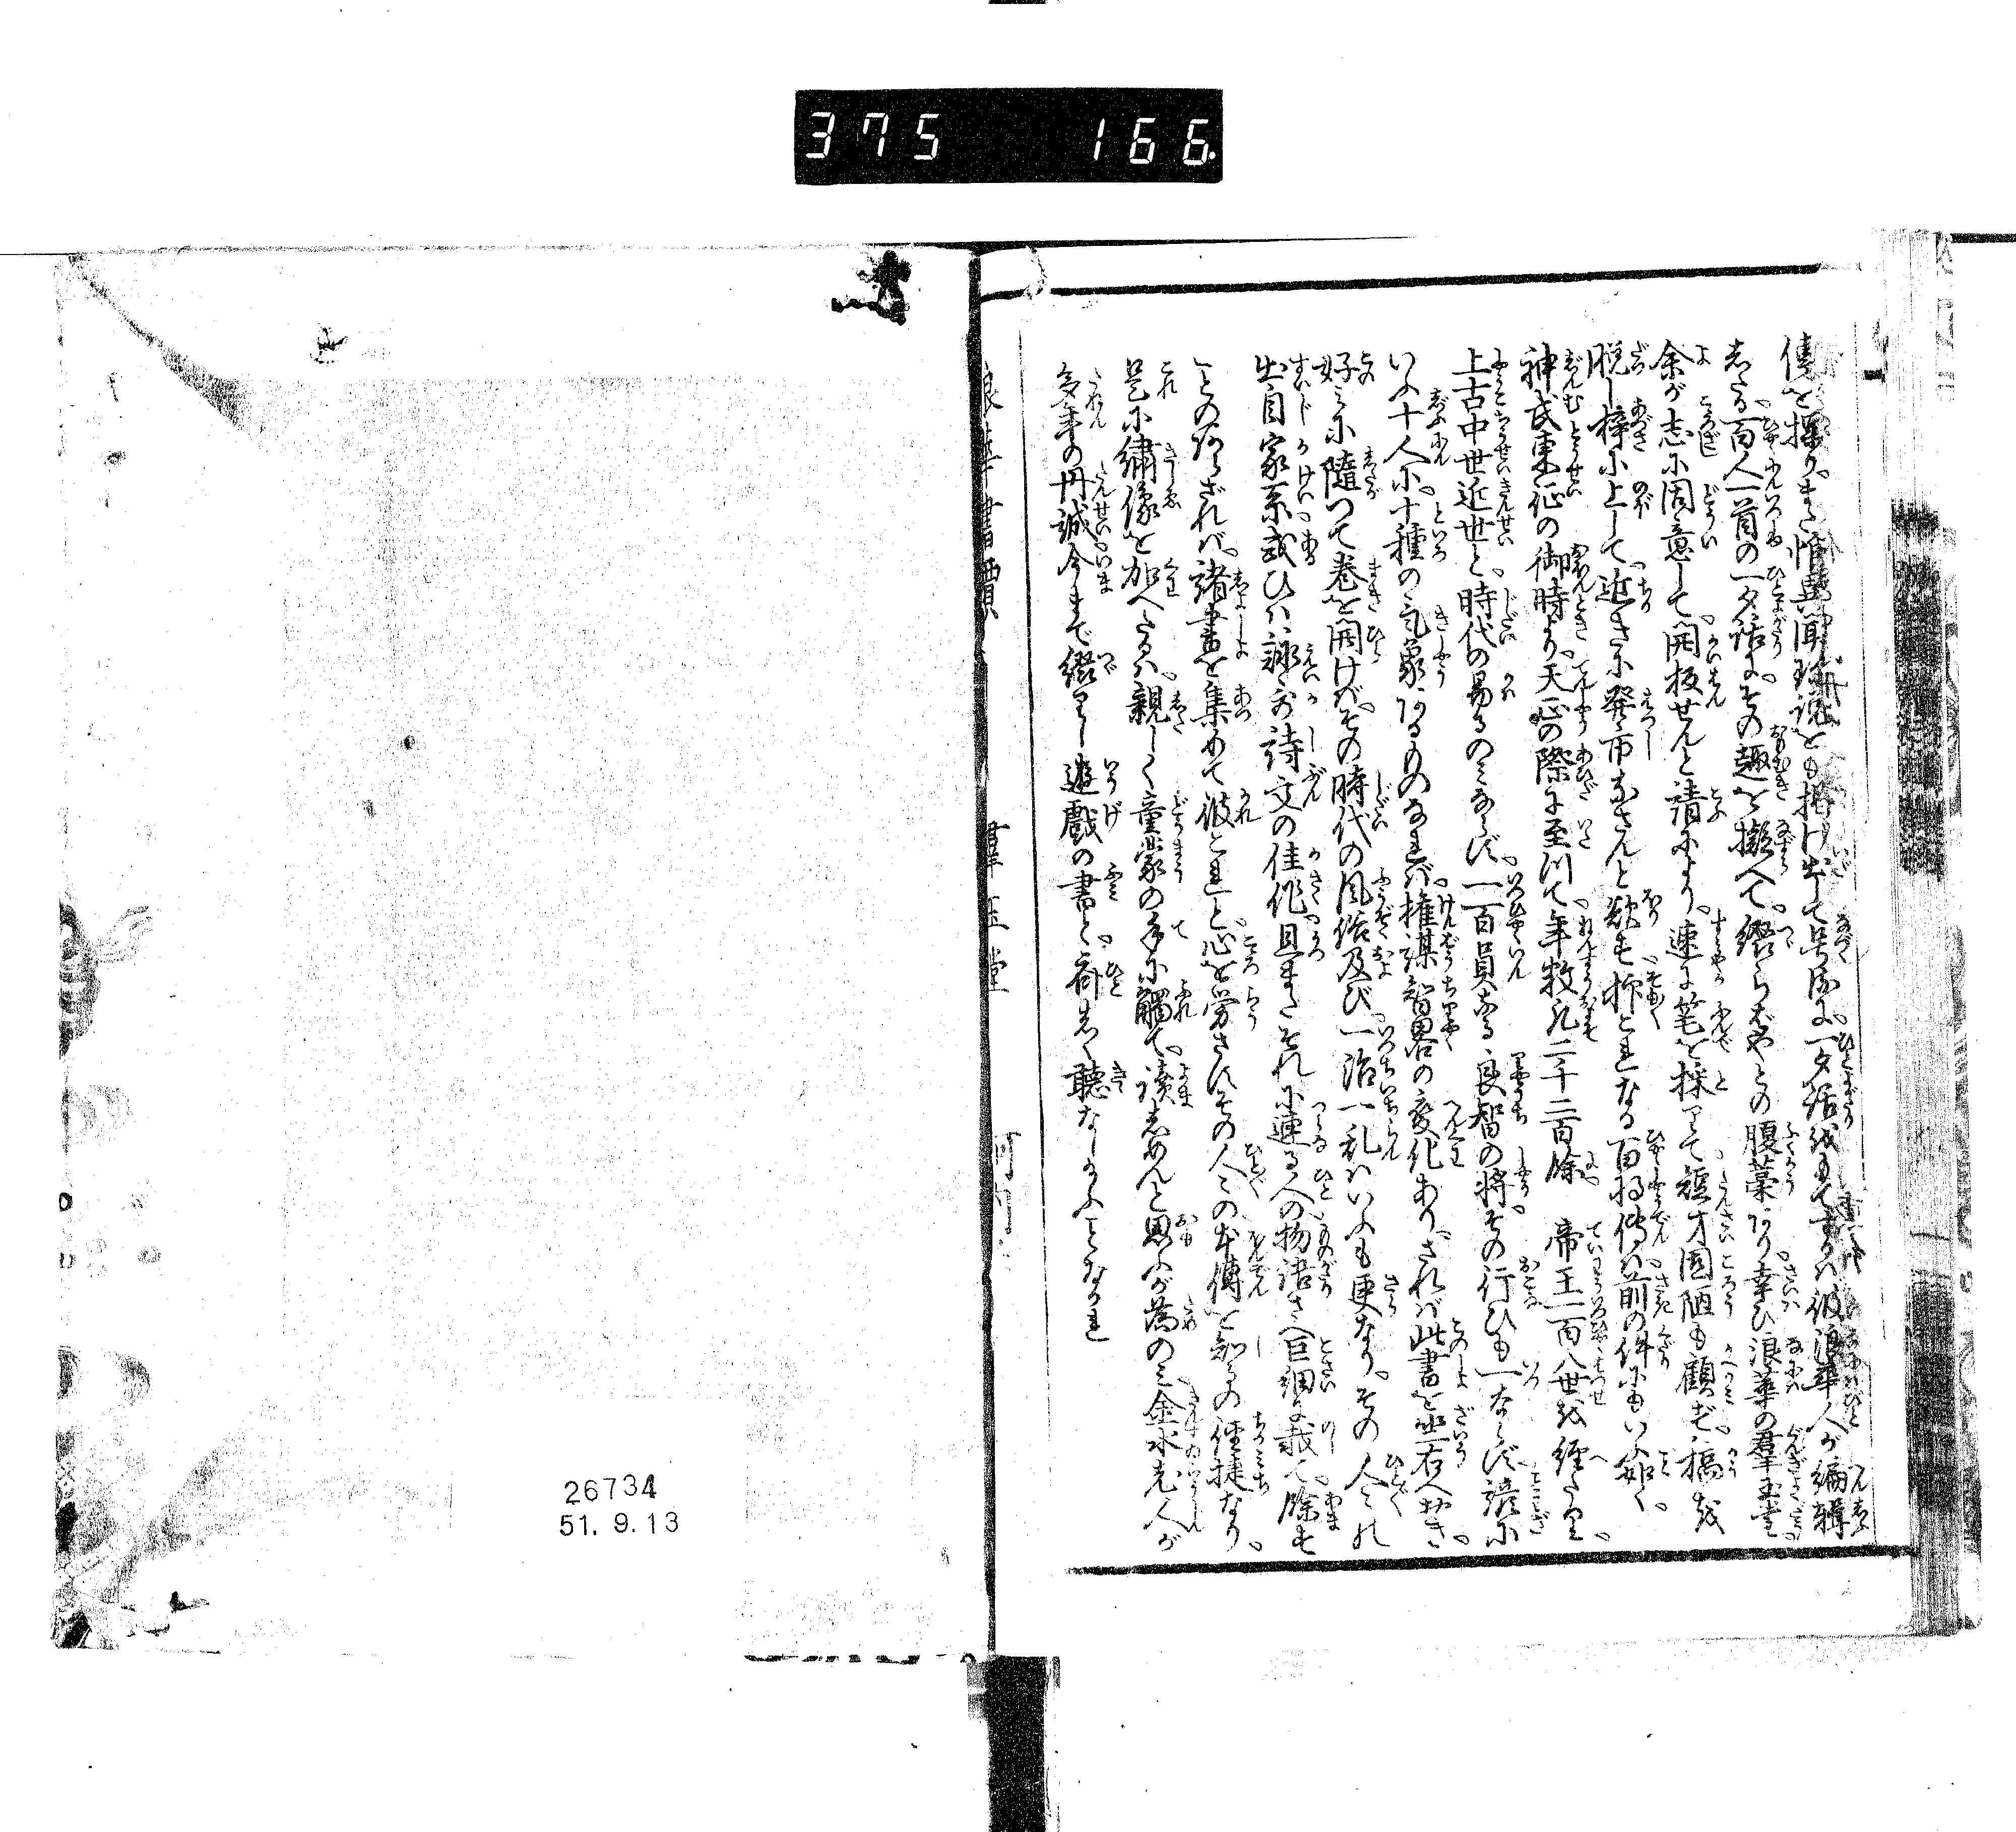 375 166
傍を探り。また惟異聞珍説をも掲げ出して号に一夕話
したる。百人一首の一夕話に。その趣を擬へて。綴らばやとの腹藁あり。幸ひ浪華の群玉堂
余が志に同意して。開板せんと請ふより。速に筆を採りて。短才固陋も顧ず。稿を
脱し梓に上して。近きに発市なさんと欲す。抑これなる百将伝は。前の件にもいふ如く。
神武東征の御時より。天正の際に至つて。年数凡二千二百余 帝王一百八世を経たり。
上古中世近世と。時代の易るのみならず。一百員なる良智の将。その行ひも一ならず。諺に
いふ十人に。十種の気象あるものなれば。権謀智略の変化あり。されば此書を坐右へおき。
好みに随つて巻を開けば。その時代の風俗及び。一治一乱はいふも更なり。その人々の
出自家系。或ひは詠歌詩文の佳作。且またそれに連る人の物語さへ巨細に載て。余す
ことのあらざれば。諸書を集めて彼これと。心を労さず。その人々の本伝を知るの径捷なり。
是に繍像を加へたるは。親しく童蒙の手に触て。読しめんと思ふが為のみ。金水老人が
多年の丹誠。今まで綴りし遊戯の書と。斉しく聴なしたまふことなかれ
浪華書賈 群玉堂
26734
51. 9. 13